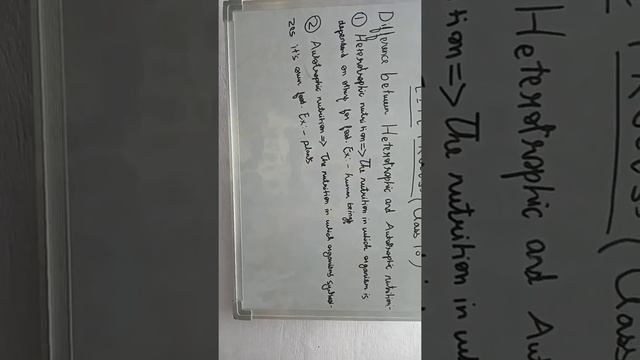 LIFE PROCESS (Class 10)
Difference between Heterotrophic and Autotrophic nutrition-
① Heterotrophic nutrition => The nutrition in which organism is
dependent on others for food. Ex. - human beings
② Autotrophic nutrition => The nutrition in which organisms synthesi-
zes it's own food. Ex. - plants